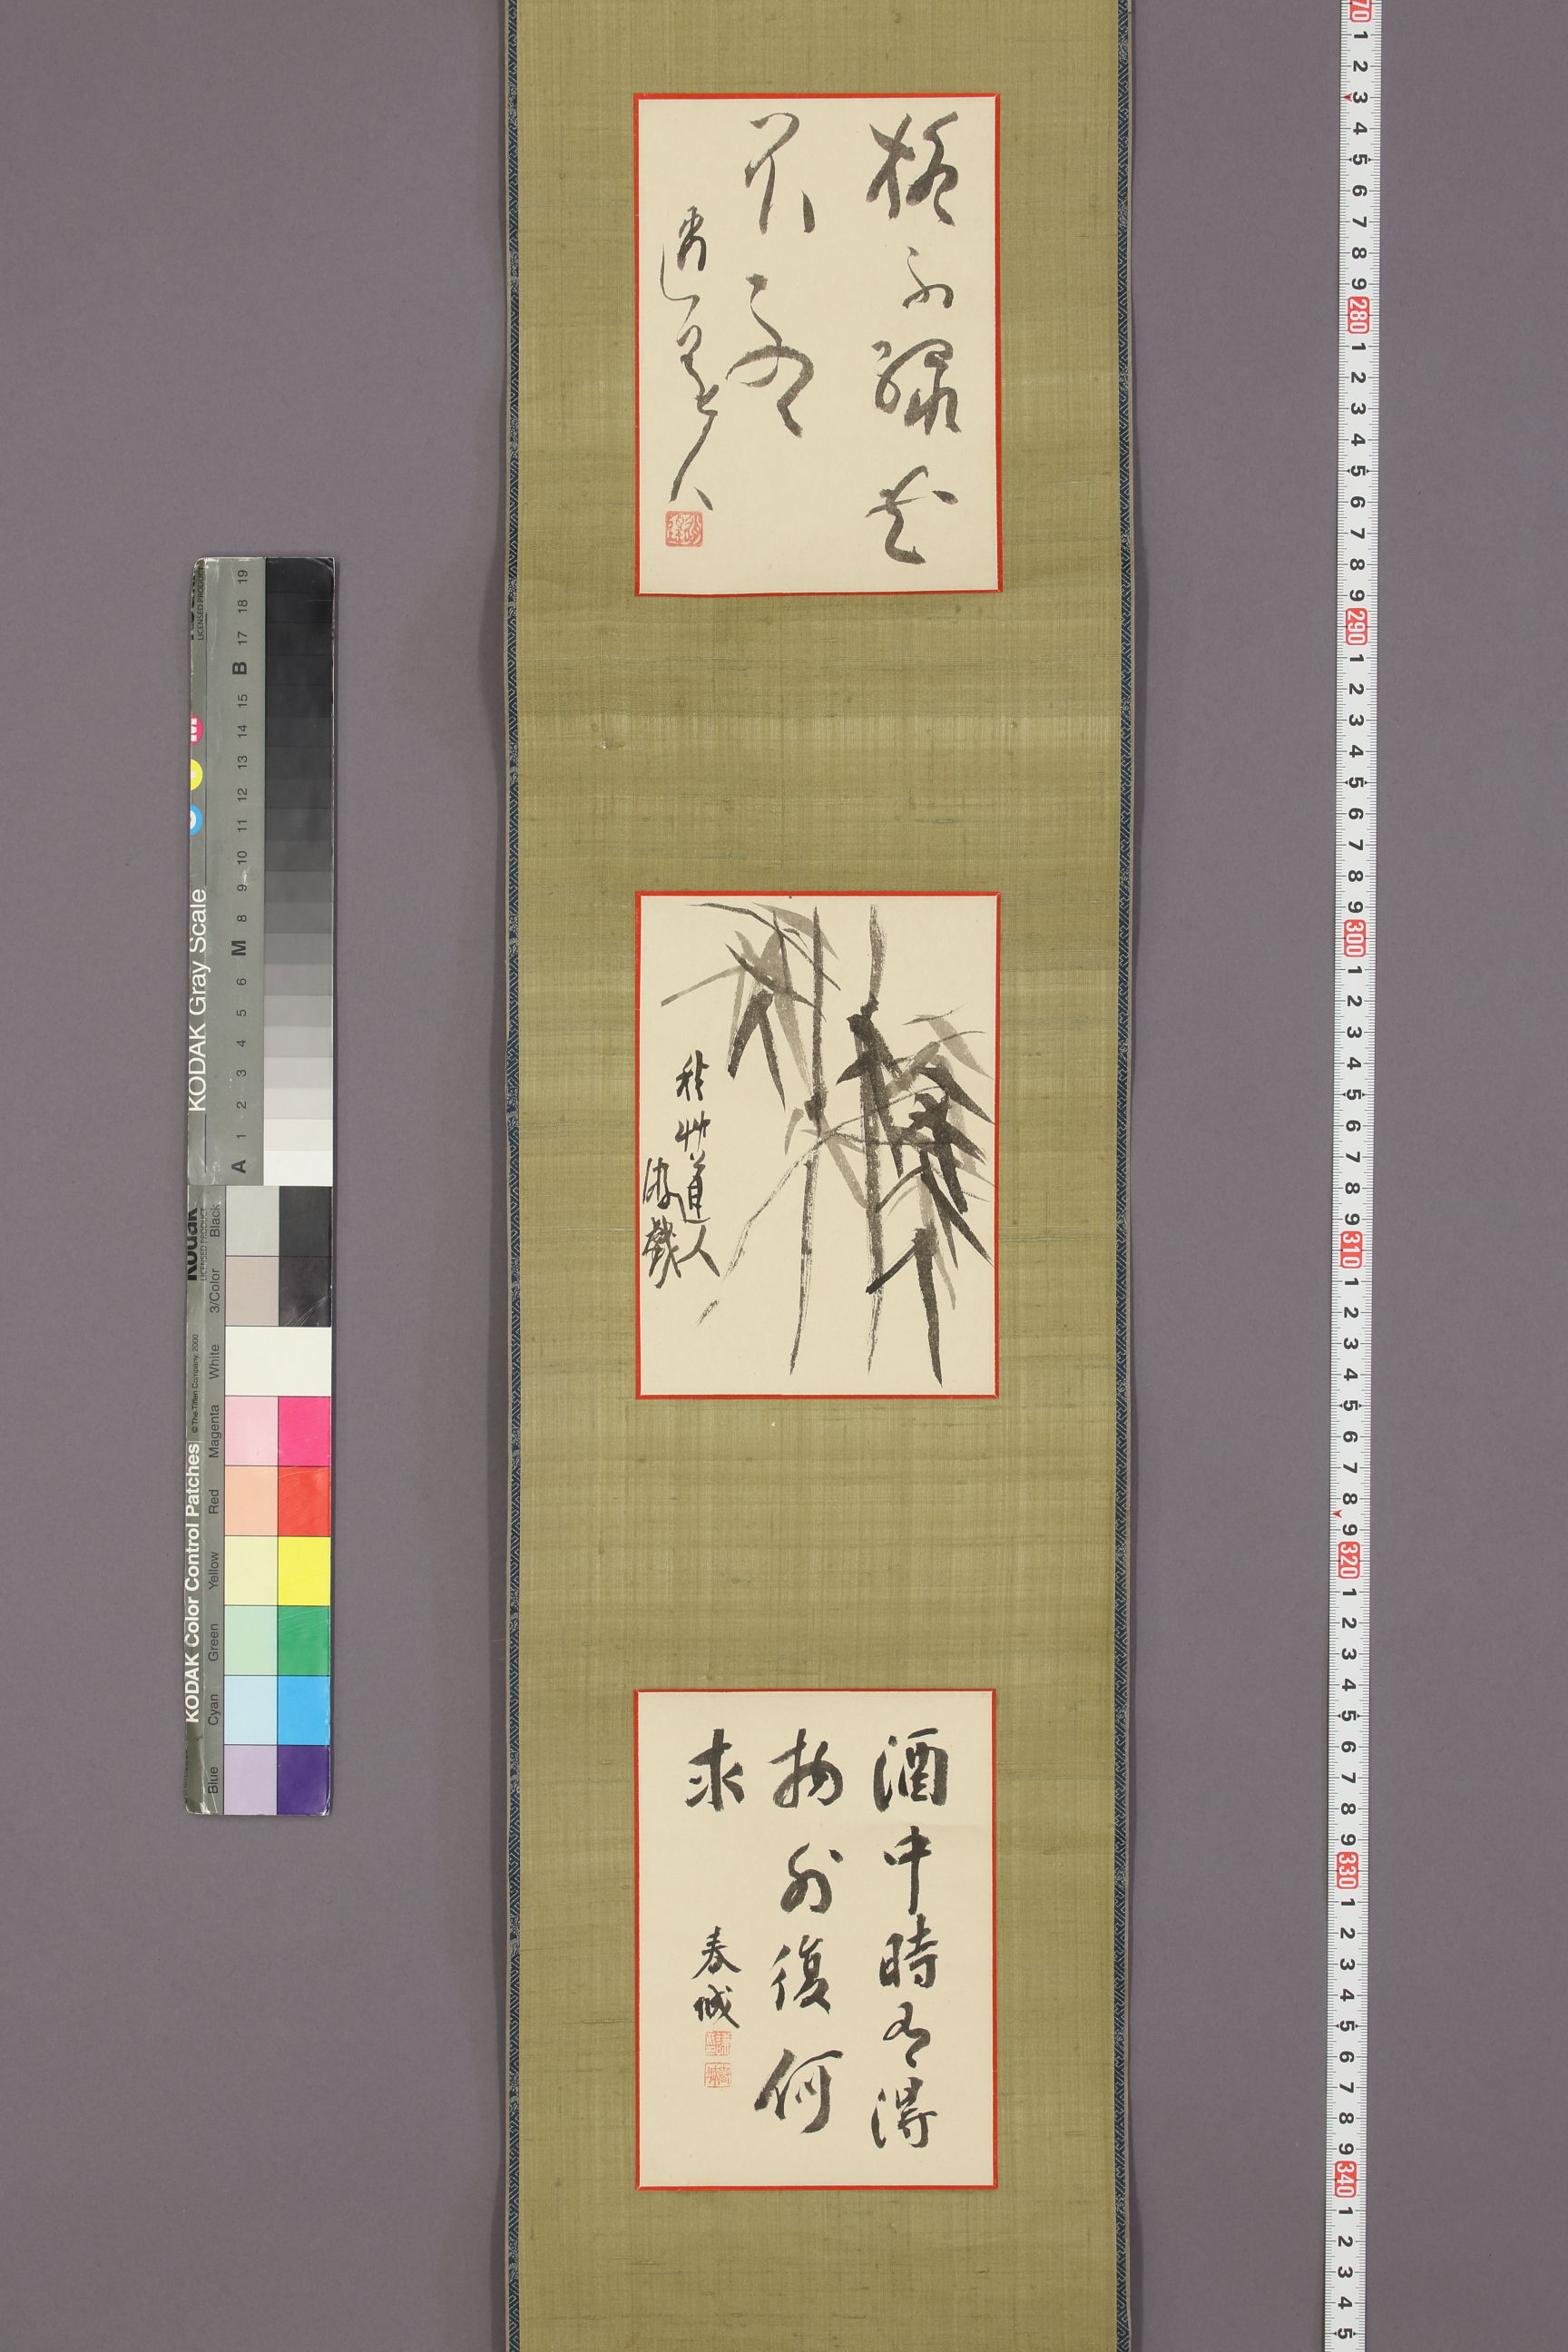 緑花
人
秋艸道人
游戲
酒中時有得
物外復何
求
春城
KODAK Gray Scale
LICENSED PRODUCT
A 1 2 3 4 5 6 M 8 9 10 11 12 13 14 15 B 17 18 19
Kodak
LICENSED PRODUCT
KODAK Color Control Patches
© The Tiffen Company, 2000
Blue Cyan Green Yellow Red Magenta White 3/Color Black
70 1 2 3 4 5 6 7 8 9 280 1 2 3 4 5 6 7 8 9 290 1 2 3 4 5 6 7 8 9 300 1 2 3 4 5 6 7 8 9 310 1 2 3 4 5 6 7 8 9 320 1 2 3 4 5 6 7 8 9 330 1 2 3 4 5 6 7 8 9 340 1 2 3 4 5